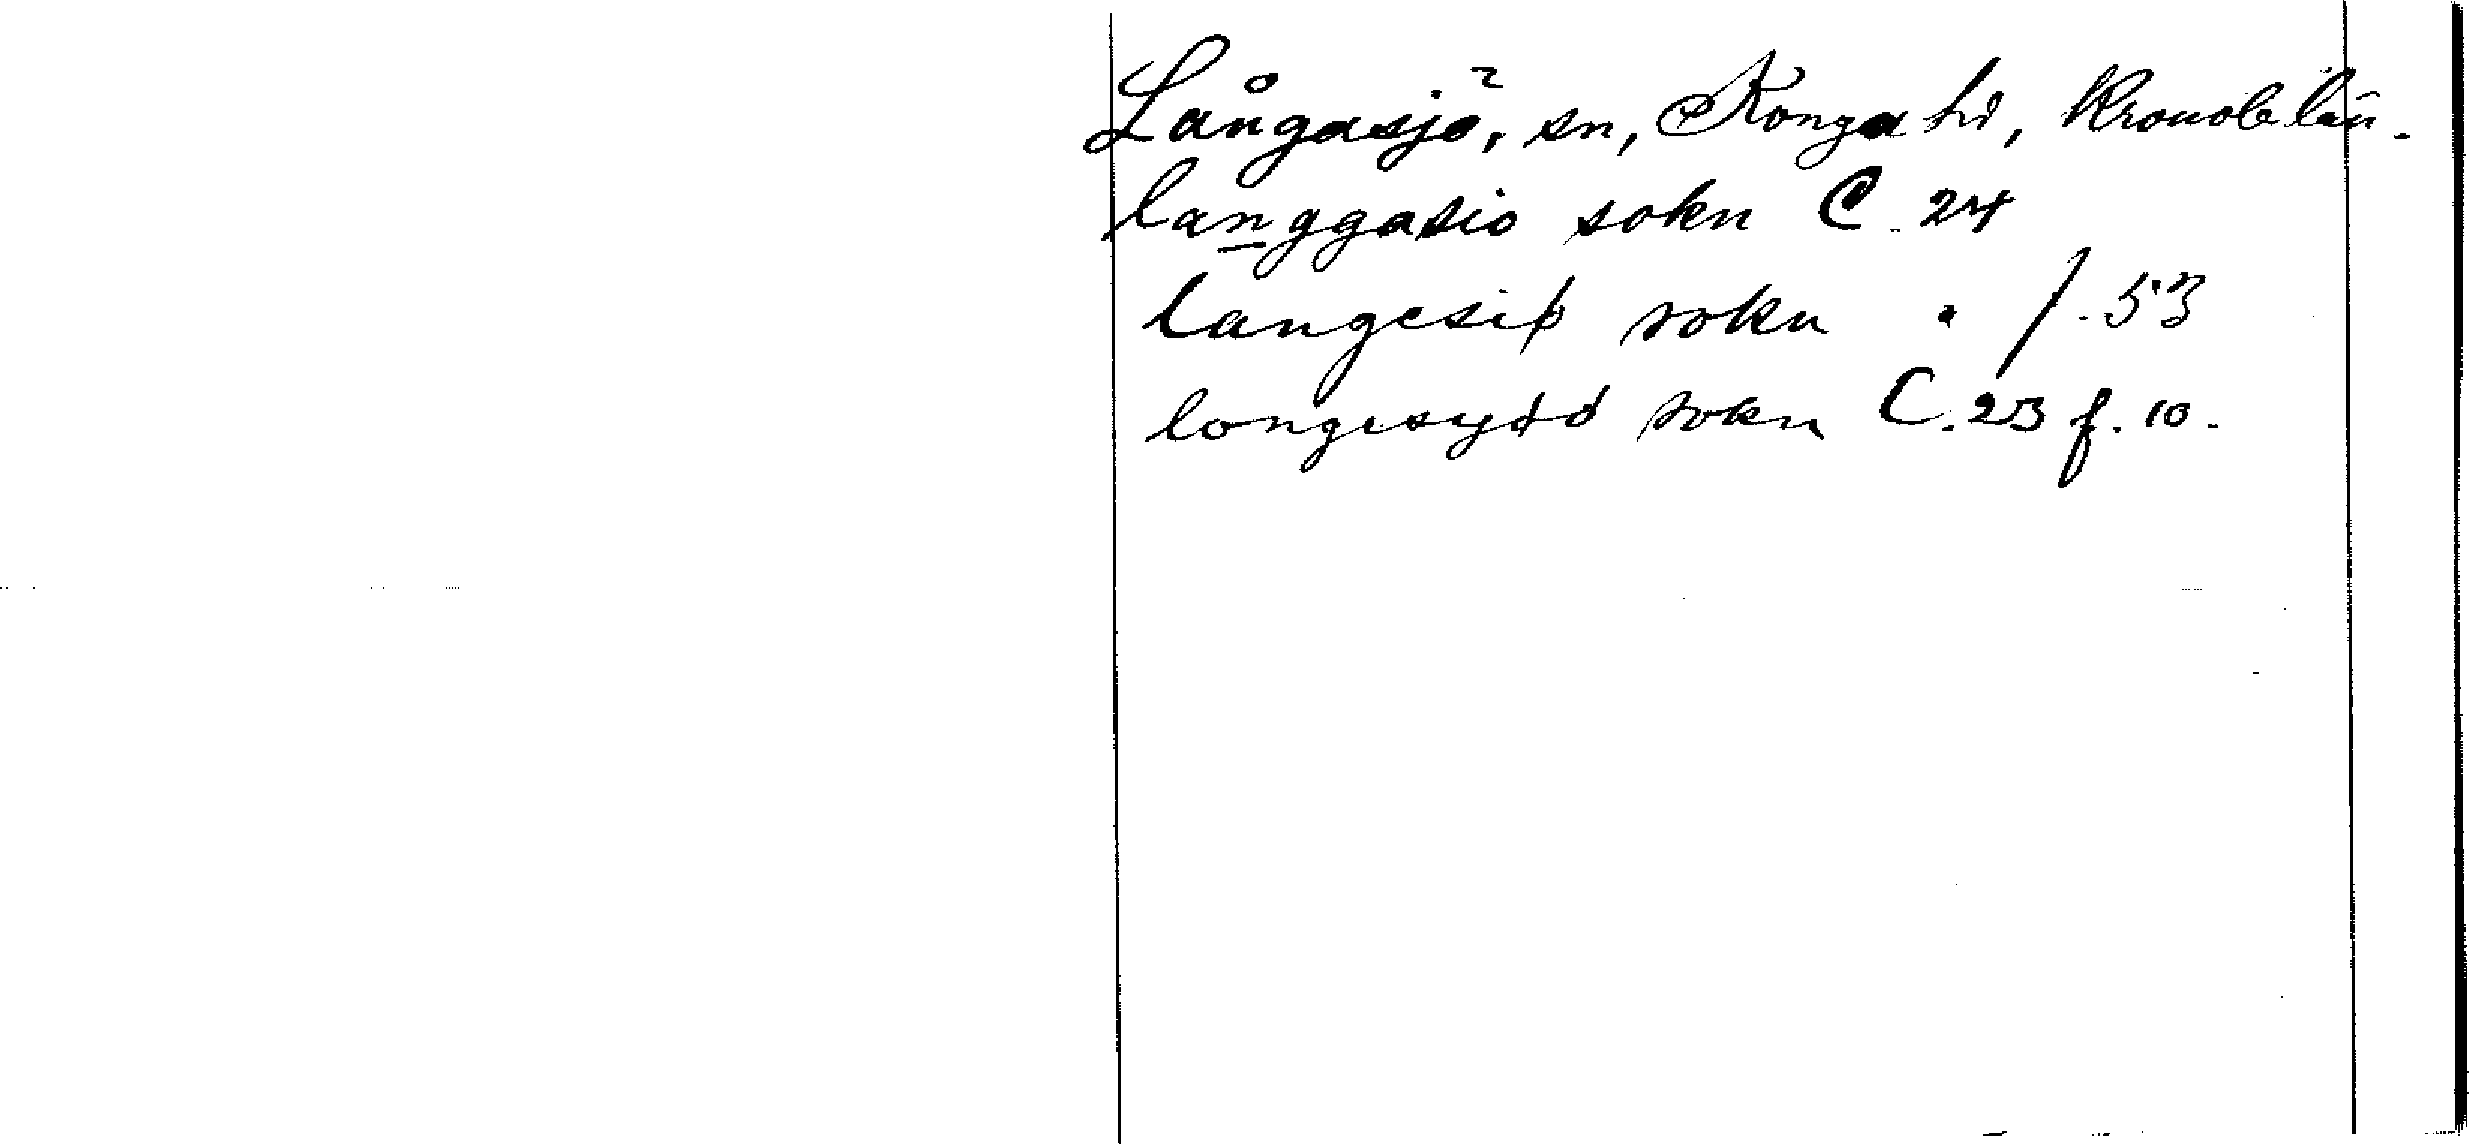 Långasjö, sn, Konga hd, Kronob län.
langgasio sokn C. 24
langesiø sokn " f. 53
longesyøø sokn C. 23 f. 10.